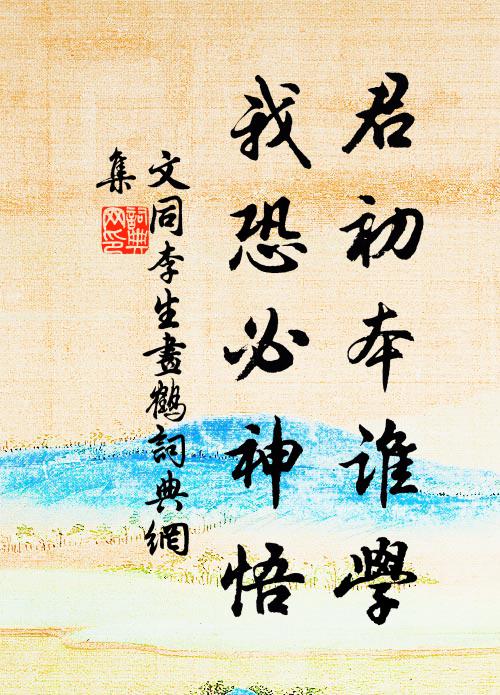 君初本誰學
我恐必神悟
文同李生畫鶴詞典網
集
詞典
网印